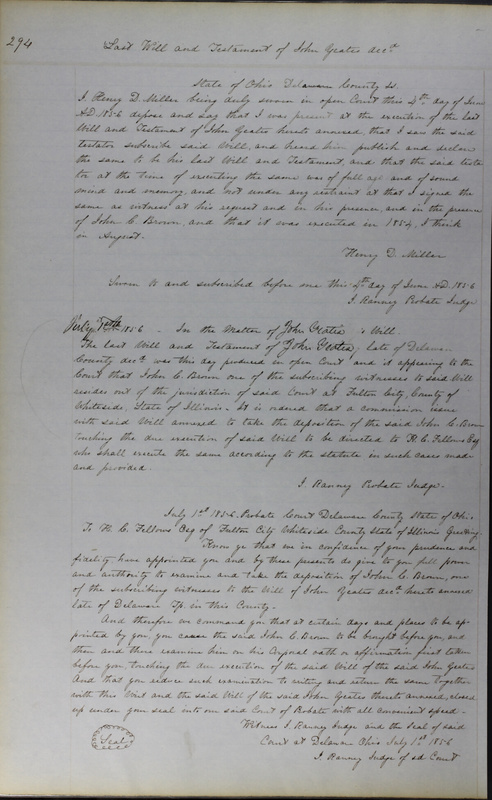 294
Last Will and Testament of John Yeates decd.
State of Ohio Delaware County ss.
I, Henry D. Miller being duly sworn in open Court this 4th day of June
A.D. 1856 depose and say that I was present at the execution of the last
Will and Testament of John Yeates hereto annexed, that I saw the said
testator subscribe said Will, and heard him publish and declare
the same to be his last Will and Testament, and that the said testa
tor at the time of executing the same was of full age and of sound
mind and memory, and not under any restraint at that I signed the
same as witness at his request and in his presence, and in the presence
of John C. Brown, and that it was executed in 1854, I think
in August.
Henry D. Miller
Sworn to and subscribed before me this 4th day of June A.D. 1856
I. Ranney Probate Judge
July 1856 - In the Matter of John Yeates's Will.
The last Will and Testament of John Yeates, late of Delaware
County decd. was this day produced in open Court and it appearing to the
Court that John C. Brown one of the subscribing witnesses to said Will
resides out of the jurisdiction of said Court at Fulton City, County of
Whiteside, State of Illinois. It is ordered that a commission issue
with said Will annexed to take the deposition of the said John C. Brown
touching the due execution of said Will to be directed to H. C. Fellows Esq
who shall execute the same according to the statute in such cases made
and provided.
I. Ranney Probate Judge.
July 1st 1856. Probate Court Delaware County State of Ohio
To H. C. Fellows Esq of Fulton City Whiteside County State of Illinois Greeting.
Know ye that we in confidence of your prudence and
fidelity have appointed you and by these presents do give to you full power
and authority to examine and take the deposition of John C. Brown, one
of the subscribing witnesses to the Will of John Yeates decd. hereto annexed
late of Delaware Tp. in this County.
And therefore we command you that at certain days and places to be ap-
pointed by you, you cause the said John C. Brown to be brought before you, and
then and there examine him on his oath or affirmation first taken
before you, touching the due execution of the said Will of the said John Yeates
And that you reduce such examination to writing and return the same together
with this Writ and the said Will of the said John Yeates thereto annexed, closed
up under your seal into our said Court of Probate with all convenient speed.
Witness I. Ranney Judge and the Seal of said
Court at Delaware Ohio July 1st 1856
I. Ranney Judge of sd Court
Seal